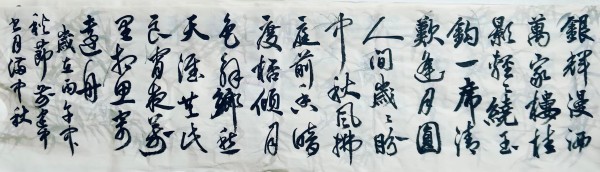 銀輝漫洒
萬家樓桂
影輕々繞玉
鈎一席清
歡逢月圓
人間歲々盼
中秋風拂
庭前香暗
度梧傾月
色解鄉愁
天涯共此
良宵夜萬
里相思寄
遠舟
歲在丙午中
秋節
月滿中秋